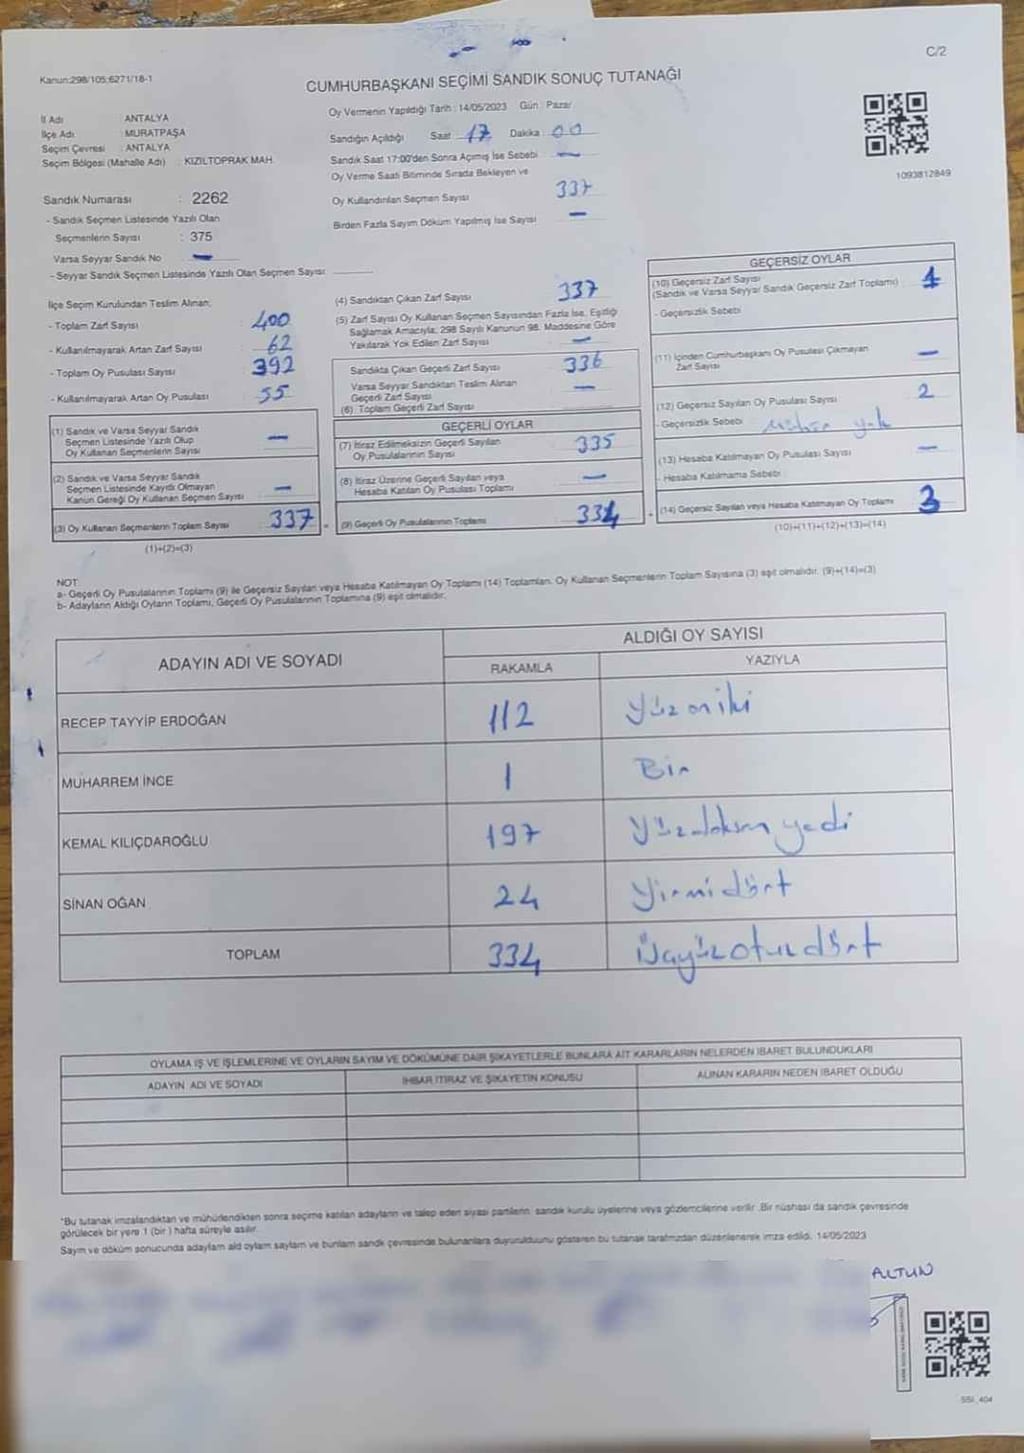 C/2
Kanun:298/105;6271/18-1
CUMHURBAŞKANI SEÇİMİ SANDIK SONUÇ TUTANAĞI
İl Adı ANTALYA
İlçe Adı : MURATPAŞA
Seçim Çevresi : ANTALYA
Seçim Bölgesi (Mahalle Adı) : KIZILTOPRAK MAH.
Oy Vermenin Yapıldığı Tarih : 14/05/2023 Gün : Pazar
Sandığın Açıldığı Saat 17 Dakika : 00
Sandık Saat 17:00'den Sonra Açımış İse Sebebi —
Oy Verme Saati Bitiminde Sırada Bekleyen ve
Oy Kullandırılan Seçmen Sayısı 337
Birden Fazla Sayım Döküm Yapılmış İse Sayısı —
1093812849
Sandık Numarası : 2262
- Sandık Seçmen Listesinde Yazılı Olan
Seçmenlerin Sayısı : 375
Varsa Seyyar Sandık No —
- Seyyar Sandık Seçmen Listesinde Yazılı Olan Seçmen Sayısı
İlçe Seçim Kurulundan Teslim Alınan;
- Toplam Zarf Sayısı : 400
- Kullanılmayarak Artan Zarf Sayısı : 62
- Toplam Oy Pusulası Sayısı : 392
- Kullanılmayarak Artan Oy Pusulası : 55
(1) Sandık ve Varsa Seyyar Sandık
Seçmen Listesinde Yazılı Olup
Oy Kullanan Seçmenlerin Sayısı —
(2) Sandık ve Varsa Seyyar Sandık
Seçmen Listesinde Kayıtlı Olmayan
Kanun Gereği Oy Kullanan Seçmen Sayısı —
(3) Oy Kullanan Seçmenlerin Toplam Sayısı 337
(1)+(2)=(3)
(4) Sandıktan Çıkan Zarf Sayısı 337
(5) Zarf Sayısı Oy Kullanan Seçmen Sayısından Fazla İse, Eşitliği
Sağlamak Amacıyla; 298 Sayılı Kanunun 98. Maddesine Göre
Yakılarak Yok Edilen Zarf Sayısı —
Sandıkta Çıkan Geçerli Zarf Sayısı 336
Varsa Seyyar Sandıktan Teslim Alınan
Geçerli Zarf Sayısı —
(6) Toplam Geçerli Zarf Sayısı
GEÇERLİ OYLAR
(7) İtiraz Edilmeksizin Geçerli Sayılan
Oy Pusulalarının Sayısı 335
(8) İtiraz Üzerine Geçerli Sayılan veya
Hesaba Katılan Oy Pusulası Toplamı —
(9) Geçerli Oy Pusulalarının Toplamı 334
GEÇERSİZ OYLAR
(10) Geçersiz Zarf Sayısı
(Sandık ve Varsa Seyyar Sandık Geçersiz Zarf Toplamı) 1
- Geçersizlik Sebebi
(11) İçinden Cumhurbaşkanı Oy Pusulası Çıkmayan
Zarf Sayısı —
(12) Geçersiz Sayılan Oy Pusulası Sayısı 2
- Geçersizlik Sebebi yok
(13) Hesaba Katılmayan Oy Pusulası Sayısı —
- Hesaba Katılmama Sebebi
(14) Geçersiz Sayılan veya Hesaba Katılmayan Oy Toplamı 3
(10)+(11)+(12)+(13)=(14)
NOT:
a- Geçerli Oy Pusulalarının Toplamı (9) ile Geçersiz Sayılan veya Hesaba Katılmayan Oy Toplamı (14) Toplamları, Oy Kullanan Seçmenlerin Toplam Sayısına (3) eşit olmalıdır. (9)+(14)=(3)
b- Adayların Aldığı Oyların Toplamı, Geçerli Oy Pusulalarının Toplamına (9) eşit olmalıdır.
ADAYIN ADI VE SOYADI
ALDIĞI OY SAYISI
RAKAMLA YAZIYLA
RECEP TAYYİP ERDOĞAN 112 Yüzoniki
MUHARREM İNCE 1 Bir
KEMAL KILIÇDAROĞLU 197 Yüzdoksan yedi
SİNAN OĞAN 24 Yirmidört
TOPLAM 334 Üçyüzotuzdört
OYLAMA İŞ VE İŞLEMLERİNE VE OYLARIN SAYIM VE DÖKÜMÜNE DAİR ŞİKAYETLERLE BUNLARA AİT KARARLARIN NELERDEN İBARET BULUNDUKLARI
ADAYIN ADI VE SOYADI İHBAR İTİRAZ VE ŞİKAYETİN KONUSU ALINAN KARARIN NEDEN İBARET OLDUĞU
*Bu tutanak imzalandıktan ve mühürlendikten sonra seçime katılan adayların ve talep eden siyasi partilerin sandık kurulu üyelerine veya gözlemcilerine verilir. Bir nüshası da sandık çevresinde
görülecek bir yere 1 (bir ) hafta süreyle asılır.
Sayım ve döküm sonucunda adayların aldığı oyların sayıları ve bunların sandık çevresinde bulunanlara duyurulduğunu gösteren bu tutanak tarafımızdan düzenlenerek imza edildi. 14/05/2023
ALTUN
SSI_404